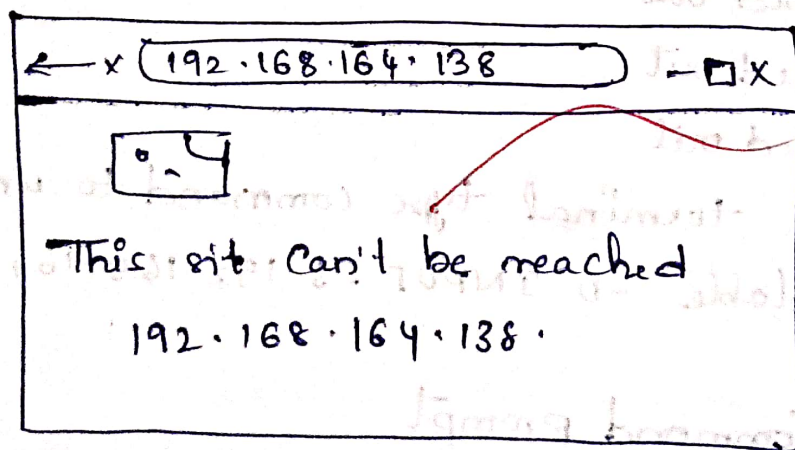 ← x 192.168.164.138 - □ x
This sit can't be reached
192.168.164.138.